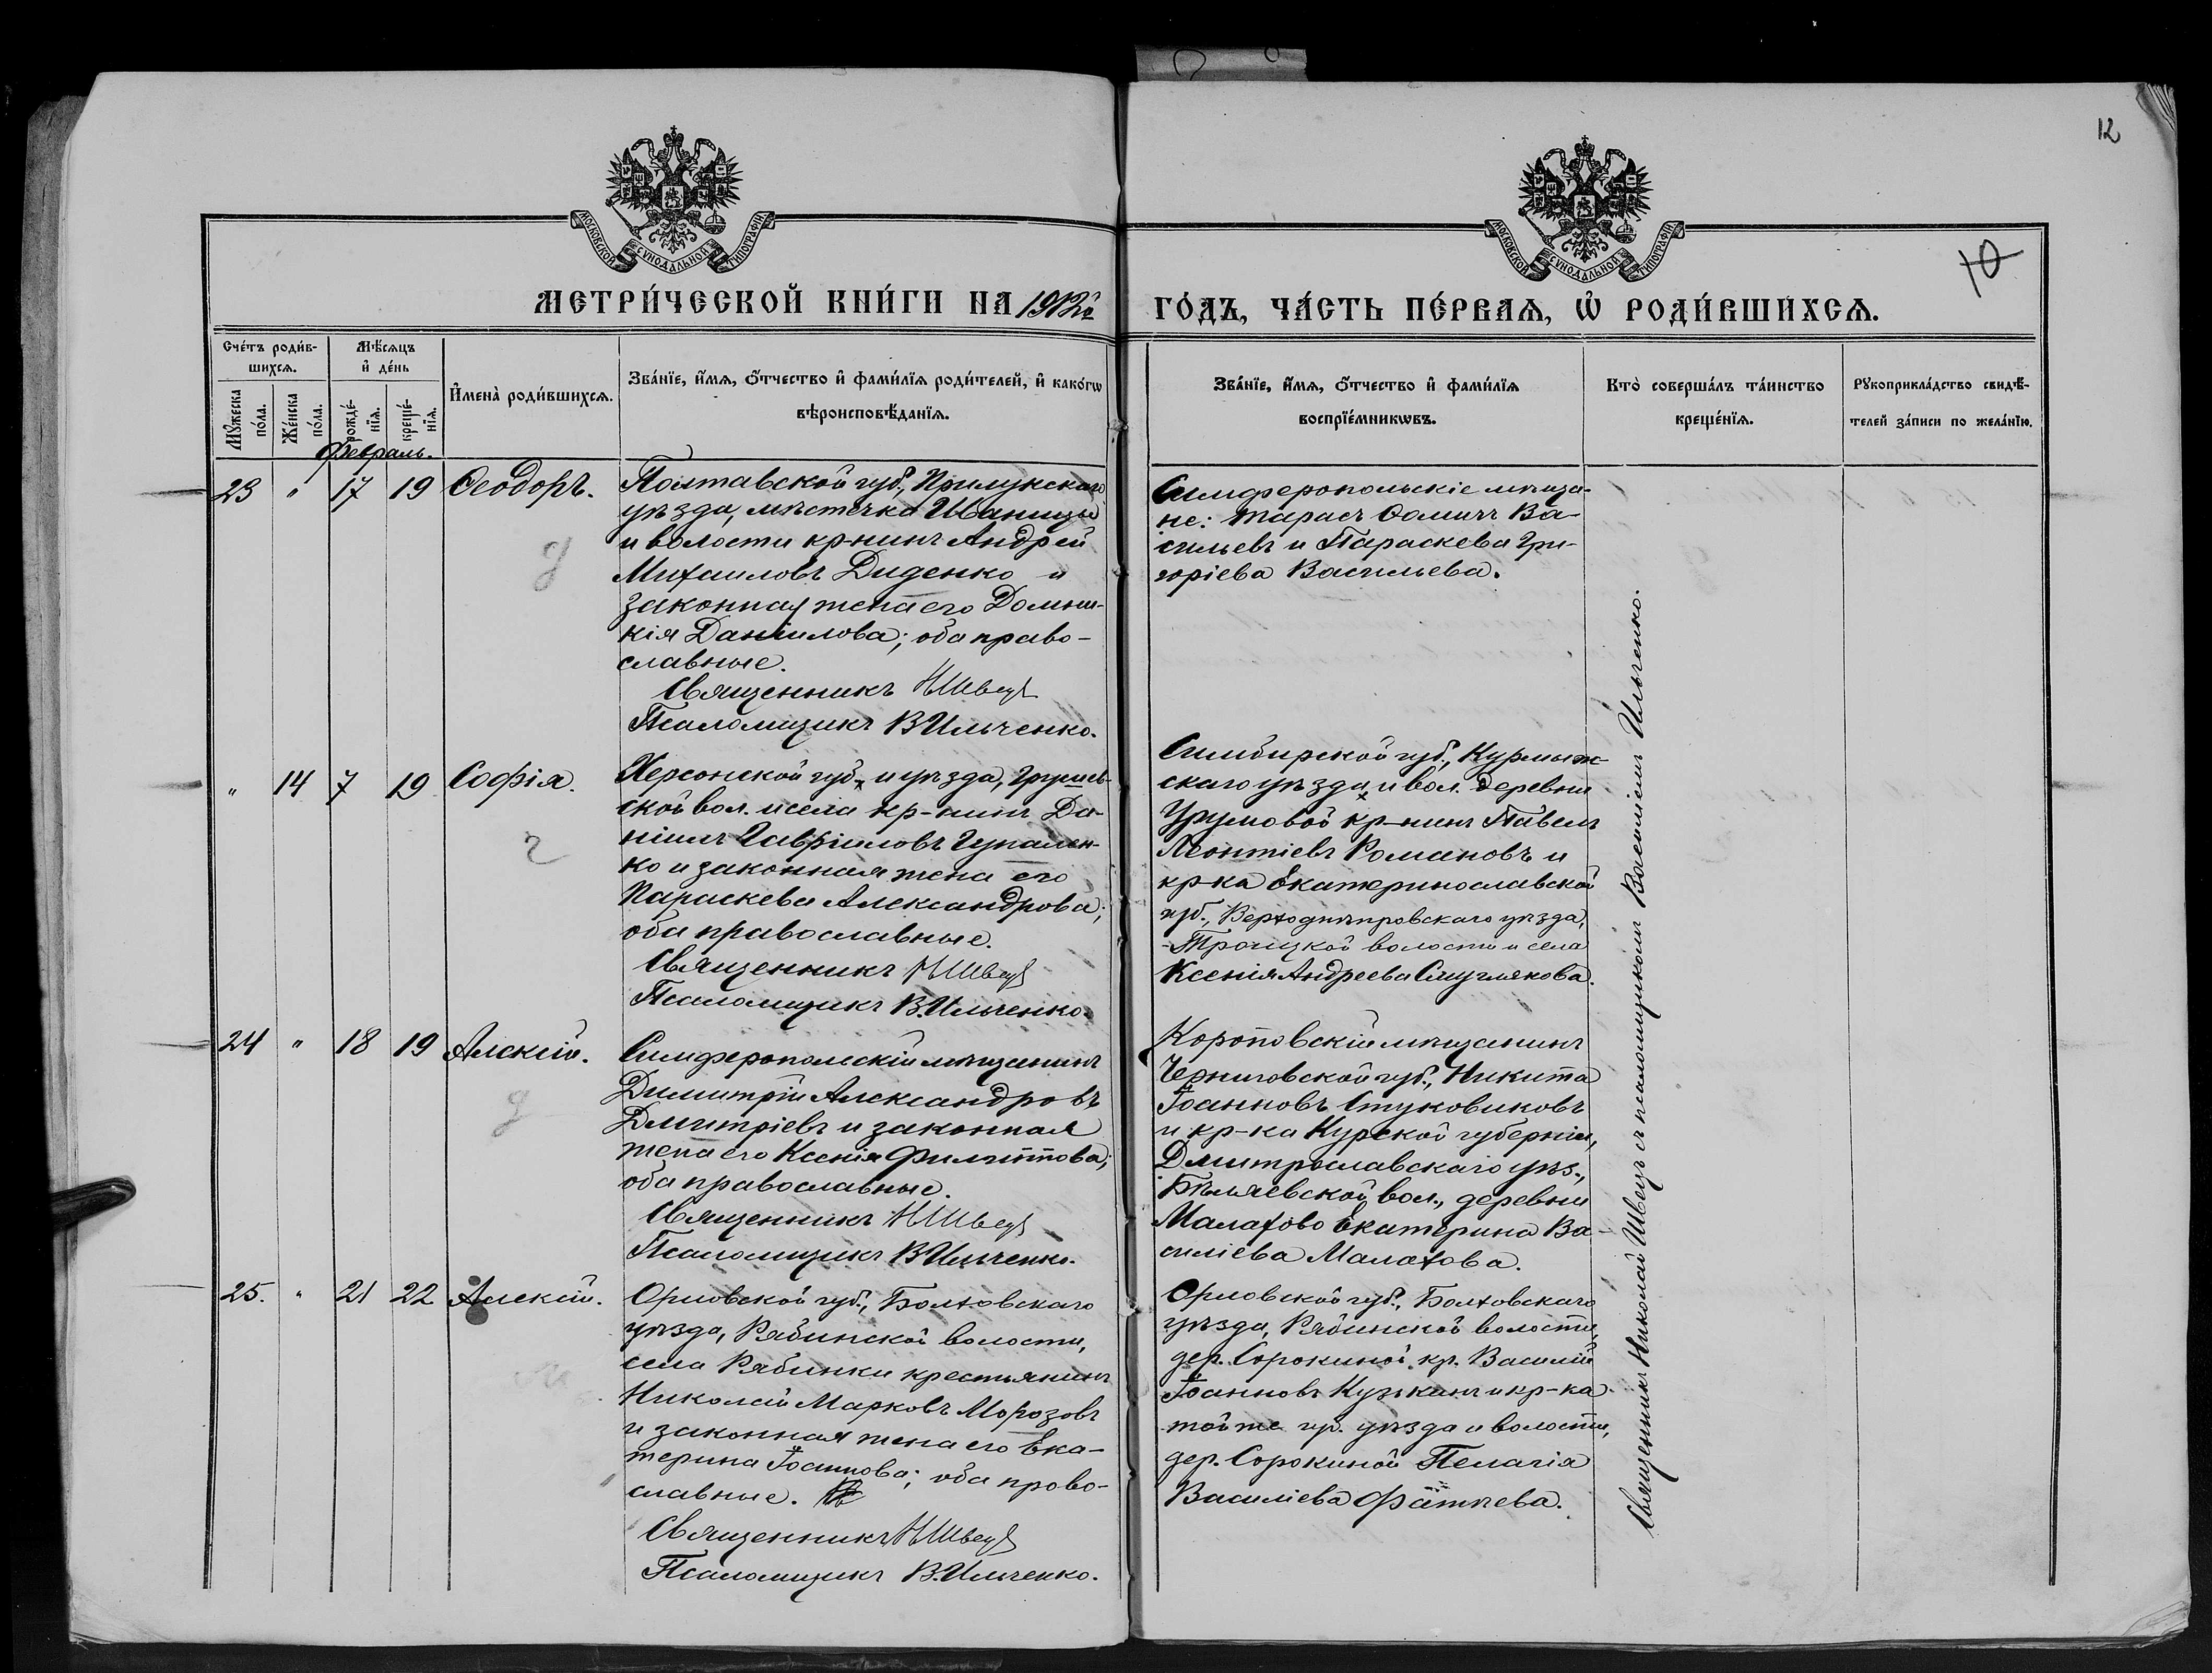 12
10
МОСКОВСКОЙ СѴНОДАЛЬНОЙ ТИПОГРАФІИ
МОСКОВСКОЙ СѴНОДАЛЬНОЙ ТИПОГРАФІИ
МЕТРИ́ЧЕСКОЙ КНИ́ГИ НА 1912й ГО́ДЪ, ЧА́СТЬ ПЕ́РВАѦ, Ѡ҆ РОДИ́ВШИХСѦ.
Сче́тъ роди́в-
шихсѧ.
Мѣ́сѧцъ
и҆ де́нь
Мꙋ́жеска
по́ла.
Же́нска
по́ла.
рожде́-
нїѧ.
креще́-
нїѧ.
И҆мена̀ роди́вшихсѧ.
Зва́нїе, и҆́мѧ, ѻ҆́тчество и҆ фами́лїѧ роди́телей, и҆ како́гѡ
вѣроисповѣ́данїѧ.
Зва́нїе, и҆́мѧ, ѻ҆́тчество и҆ фами́лїѧ
воспрїе́мникѡвъ.
Кто̀ соверша́лъ та́инство
креще́нїѧ.
Рꙋкоприкла́дство свидѣ́-
телей за́писи по жела́нїю.
Февраль.
23 " 17 19 Ѳеодоръ.
Полтавской губ., Прилукскаго
уѣзда, мѣстечка Иваницы
и волости кр-нинъ Андрей
Михаиловъ Диденко и
законная жена его Домни-
кія Даніилова; оба право-
славные.
Священникъ Н Швецъ
Псаломщикъ В Ильченко.
Симферопольскіе мѣща-
не: Тарасъ Ѳомичъ Ва-
сильевъ и Параскева Гри-
горіева Васильева.
д
" 14 7 19 Софія.
Херсонской губ. и уѣзда,
ской вол. и села кр-нинъ Да-
ніилъ Гавріиловъ
ко и законная жена его
Параскева Александрова;
оба православные.
Священникъ Н Швецъ
Псаломщикъ В. Ильченко.
Симбирской губ., Курмыж-
скаго уѣзда и вол. деревни
Урумовой кр-нинъ Павелъ
Леонтіевъ Романовъ и
кр-ка Екатеринославской
губ., Верходнѣпровскаго уѣзда,
Троицкой волости и села
Ксенія Андреева Смуглякова.
г
24 " 18 19 Алексій.
Симферополскій мѣщанинъ
Димитрій Александровъ
Дмитріевъ и законная
жена его Ксенія Филиппова;
оба православные.
Священникъ Н Швецъ
Псаломщикъ В Ильченко.
Короповскій мѣщанинъ
Черниговской губ., Никита
Іоанновъ Стуковиковъ
и кр-ка Курской губерніи,
Дмитрославскаго уѣз.,
Бѣляевской вол., деревни
Малахово Екатерина Ва-
силіева Малахова.
д
25. " 21 22 Алексій.
Орловской губ., Болховскаго
уѣзда, Рябинской волости,
села Рябинки крестьянинъ
Николай Марковъ Морозовъ
и законная жена его Ека-
терина Іоаннова; оба прово-
славные.
Священникъ Н Швецъ
Псаломщикъ В. Ильченко.
Орловской губ., Болховскаго
уѣзда, Рябинской волости,
дер. Сорокиной, кр. Василій
Іоанновъ Кузькинъ и кр-ка
той же гр. уѣзда и волости,
дер. Сорокиной Пелагія
Василіева Фатѣева.
Священникъ Николай Швецъ съ псаломщикомъ Василіемъ Ильченко.